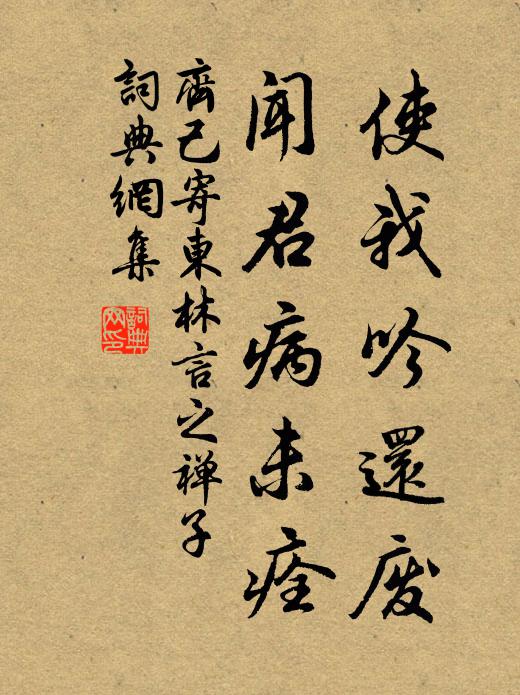 使我吟還废
聞君病未痊
齊己寄東林言之禅子
詞典網集
詞典网印